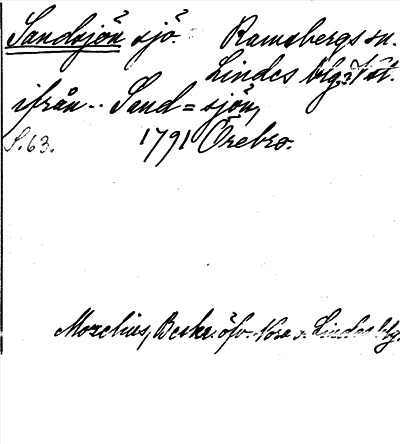 Sandsjön sjö. Ramsbergs sn.
Lindes blg.
ifrån.. Sand=sjön,
S. 63. 1791 Örebro.
Mozelius, Beskr. öfv. Nora o. Lindes blg.